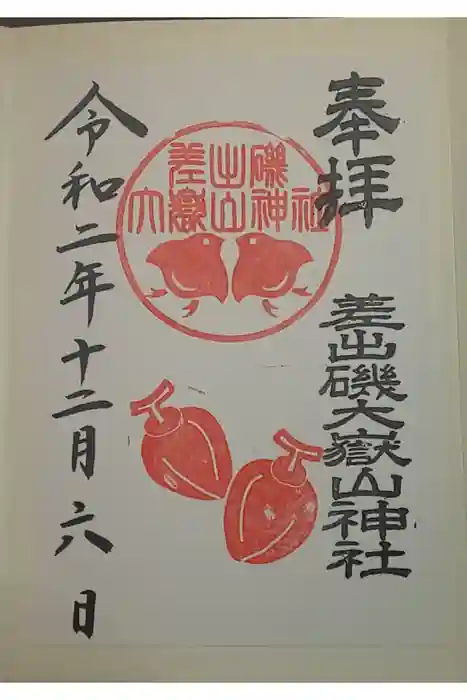 奉拝
差出磯大嶽山神社
差出磯
大嶽山神社
令和二年十二月六日